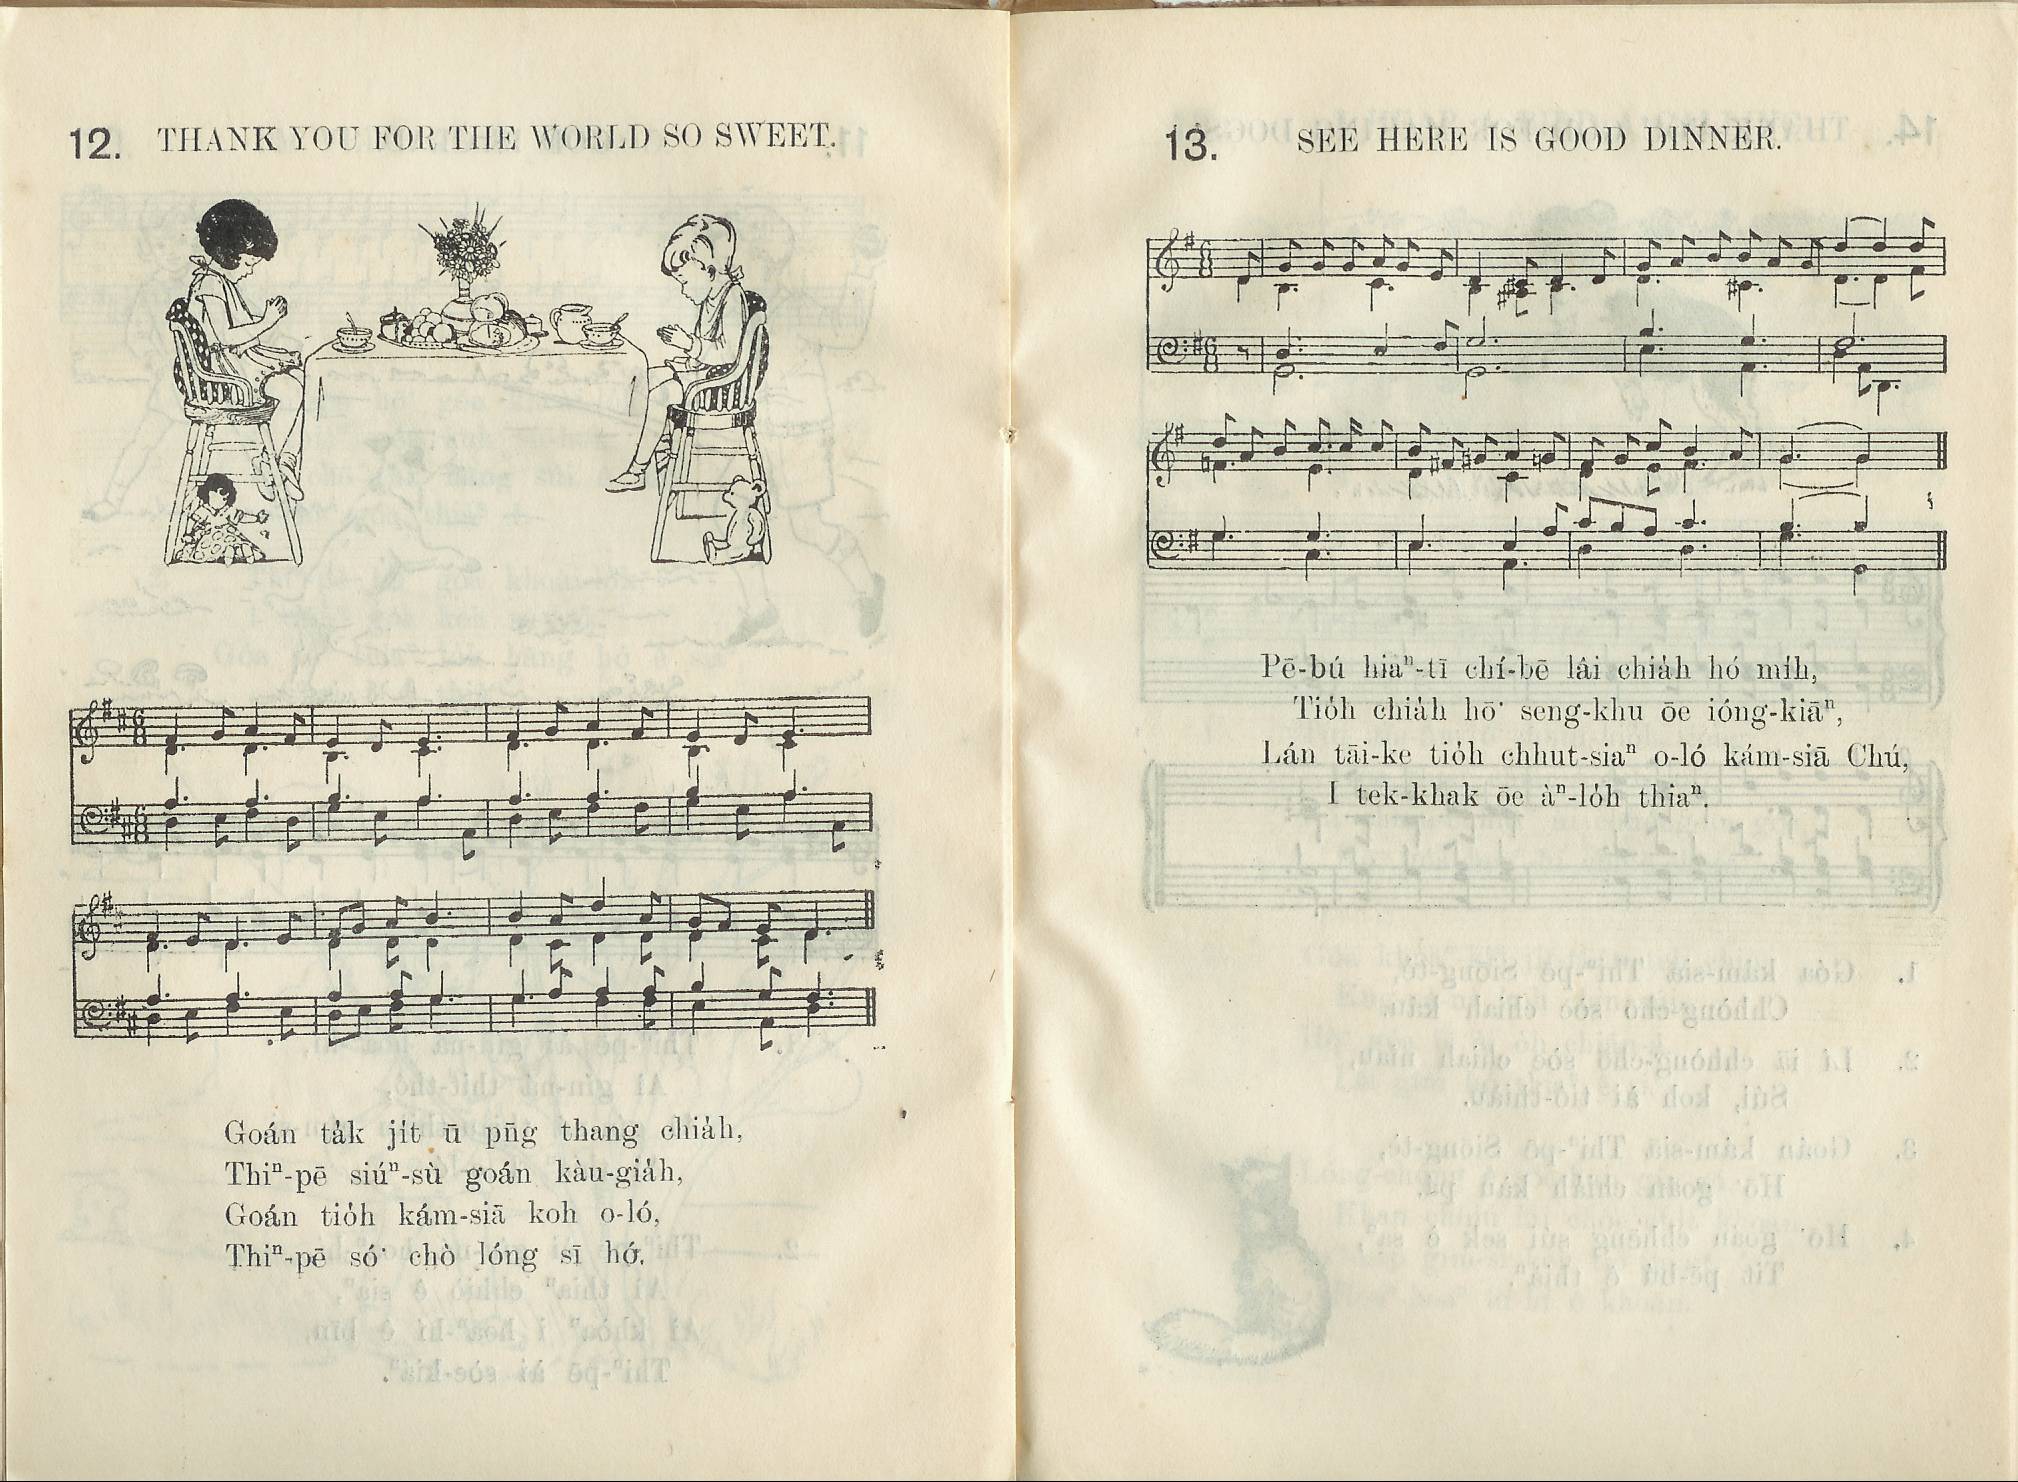 12. THANK YOU FOR THE WORLD SO SWEET.
Goán ta̍k ji̍t ū pn̄g thang chia̍h,
Thiⁿ-pē siúⁿ-sù goán kàu-gia̍h,
Goán tio̍h kám-siā koh o-ló,
Thiⁿ-pē só͘ chò lóng sī hó.
13. SEE HERE IS GOOD DINNER.
Pē-bú hiaⁿ-tī chí-bē lâi chia̍h hó mi̍h,
Tio̍h chia̍h hō͘ seng-khu ōe ióng-kiāⁿ,
Lán tāi-ke tio̍h chhut-siaⁿ o-ló kám-siā Chú,
I tek-khak ōe àⁿ-lo̍h thiaⁿ.